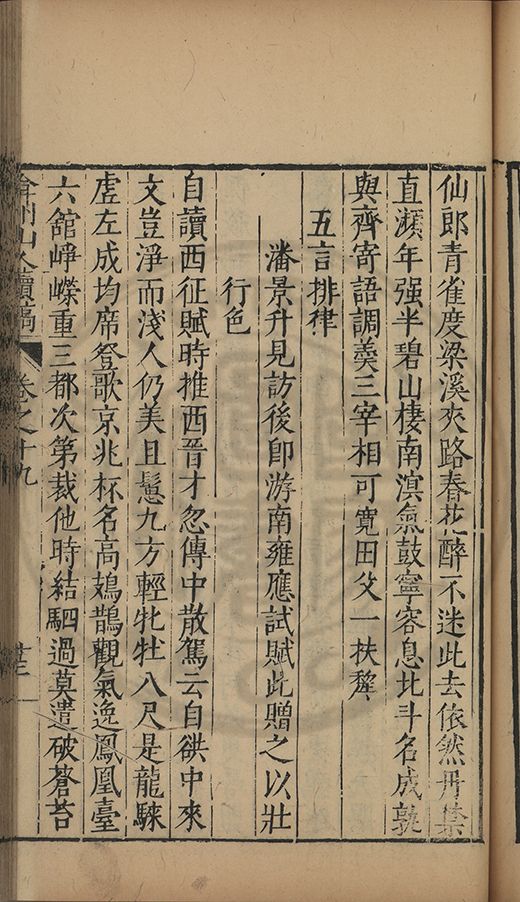 仙郎青雀度梁溪夾路春花醉不迷此去依然丹禁
直瀕年强半碧山棲南溟氣鼓寧容息北斗名成孰
與齊寄語調羹三宰相可寬田父一扶犂
五言排律
潘景升見訪後卽游南雍應試賦此贈之以壯
行色
自讀西征賦時推西晉才忽傳中散駕云自欱中來
文豈淨而淺人仍美且䰄九方輕牝牡八尺是龍騋
虗左成均席登歌京兆杯名高鳷鵲觀氣逸鳳凰臺
六舘崢嶸重三都次第裁他時結駟過莫遣破蒼苔
弇州山人續稿 卷之十九 廿三